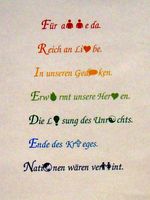 Für a e da.
Reich an Li be.
In unseren Ged ken.
Erw rmt unsere Her en.
Die L sung des Unr chts.
Ende des Kr eges.
Nati nen wären ver int.